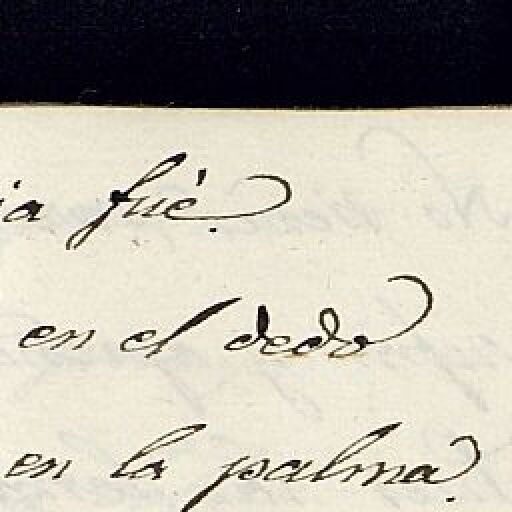 ia fué.
en el dedo
en la palma.